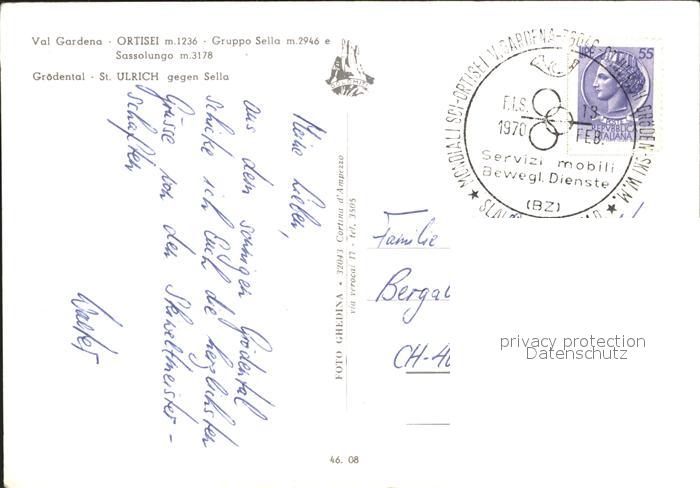 Val Gardena · ORTISEI m.1236 · Gruppo Sella m.2946 e
Sassolungo m.3178
Grödental · St. ULRICH gegen Sella
Meine Lieben,
aus dem sonnigen Grödental
schicke ich Euch die herzlichsten
Grüsse von den Skiweltmeister-
schaften
Walter
FOTO GHEDINA • 32043 Cortina d'Ampezzo
via verocai 17 - Tel. 3505
MONDIALI SCI-ORTISEI V.GARDENA-39046
GRÖDEN-SKI W.M.
F.I.S.
1970
13
FEB.
Servizi mobili
Bewegl. Dienste
(BZ)
LIRE
55
POSTE
REPVBBLICA
ITALIANA
Familie
CH-40
privacy protection
Datenschutz
46. 08